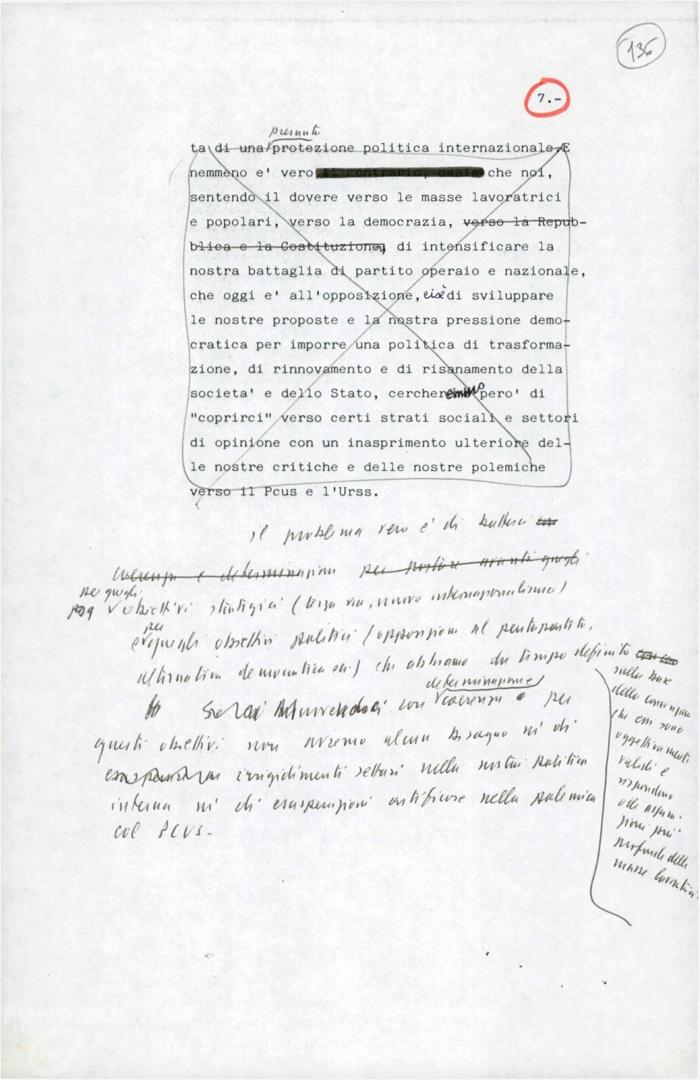 136
7.-
presunta
ta di una protezione politica internazionale. E
nemmeno e' vero il contrario, ossia che noi,
sentendo il dovere verso le masse lavoratrici
e popolari, verso la democrazia, verso la Repub-
blica e la Costituzione, di intensificare la
nostra battaglia di partito operaio e nazionale,
che oggi e' all'opposizione, cioè di sviluppare
le nostre proposte e la nostra pressione demo-
cratica per imporre una politica di trasforma-
zione, di rinnovamento e di risanamento della
societa' e dello Stato, cercheremmo pero' di
"coprirci" verso certi strati sociali e settori
di opinione con un inasprimento ulteriore del-
le nostre critiche e delle nostre polemiche
verso il Pcus e l'Urss.
il problema vero è di batterci con
coerenza e determinazione per portare avanti quegli
per quegli
obiettivi strategici (terza via, nuovo internazionalismo)
per
e quegli obiettivi politici (opposizione al pentapartito,
alternativa democratica ecc) che abbiamo da tempo definito
sulla base
della convinzione
che essi sono
oggettivamente
validi e
rispondono
alle aspira-
zioni più
profonde delle
masse lavoratrici.
determinazione
con coerenza e per
questi obiettivi non avremo alcun bisogno né di
irrigidimenti settari nella nostra politica
interna né di esasperazioni artificiose nella polemica
col PCUS.